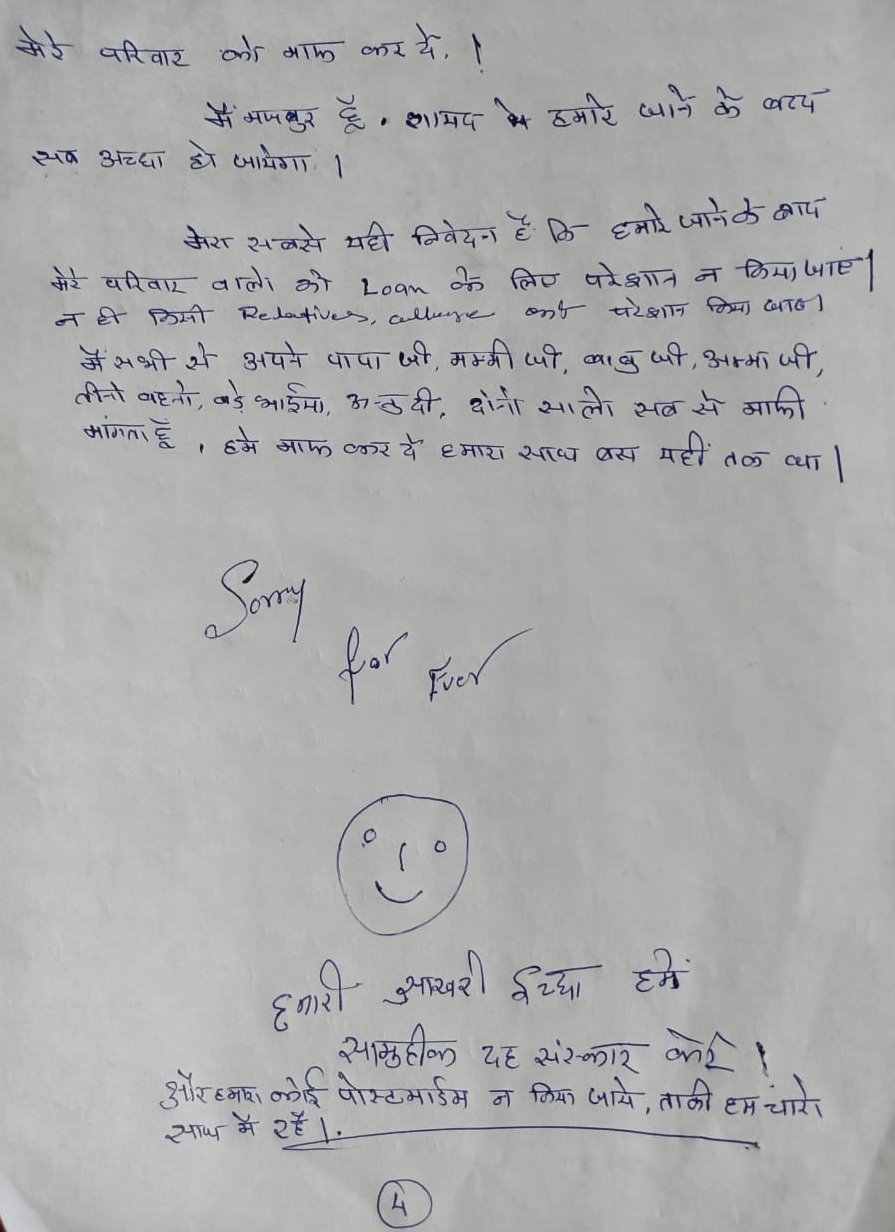 मेरे परिवार को माफ कर दे. !
मैं मजबुर हूँ . शायद हमारे जाने के बाद
सब अच्छा हो जायेगा !
मेरा सबसे यही निवेदन है कि हमारे जाने के बाद
मेरे परिवार वालो को Loan के लिए परेशान न किया जाए।
न ही किसी Relatives, को परेशान किया जाए।
मैं सभी से अपने पापा जी, मम्मी जी, बाबु जी, अम्मा जी,
तीनो बहनो, बड़े भाईया, दी, दोनो सालो सब से माफी
मांगता हूँ , हमे माफ कर दें हमारा साथ बस यहीं तक था।
Sorry
for Ever
हमारी आखरी ईच्छा हमें
सामुहीक दाह संस्कार करें !
और हमारा कोई पोस्टमार्डम न किया जाये, ताकी हम चारो
साथ में रहें।.
4